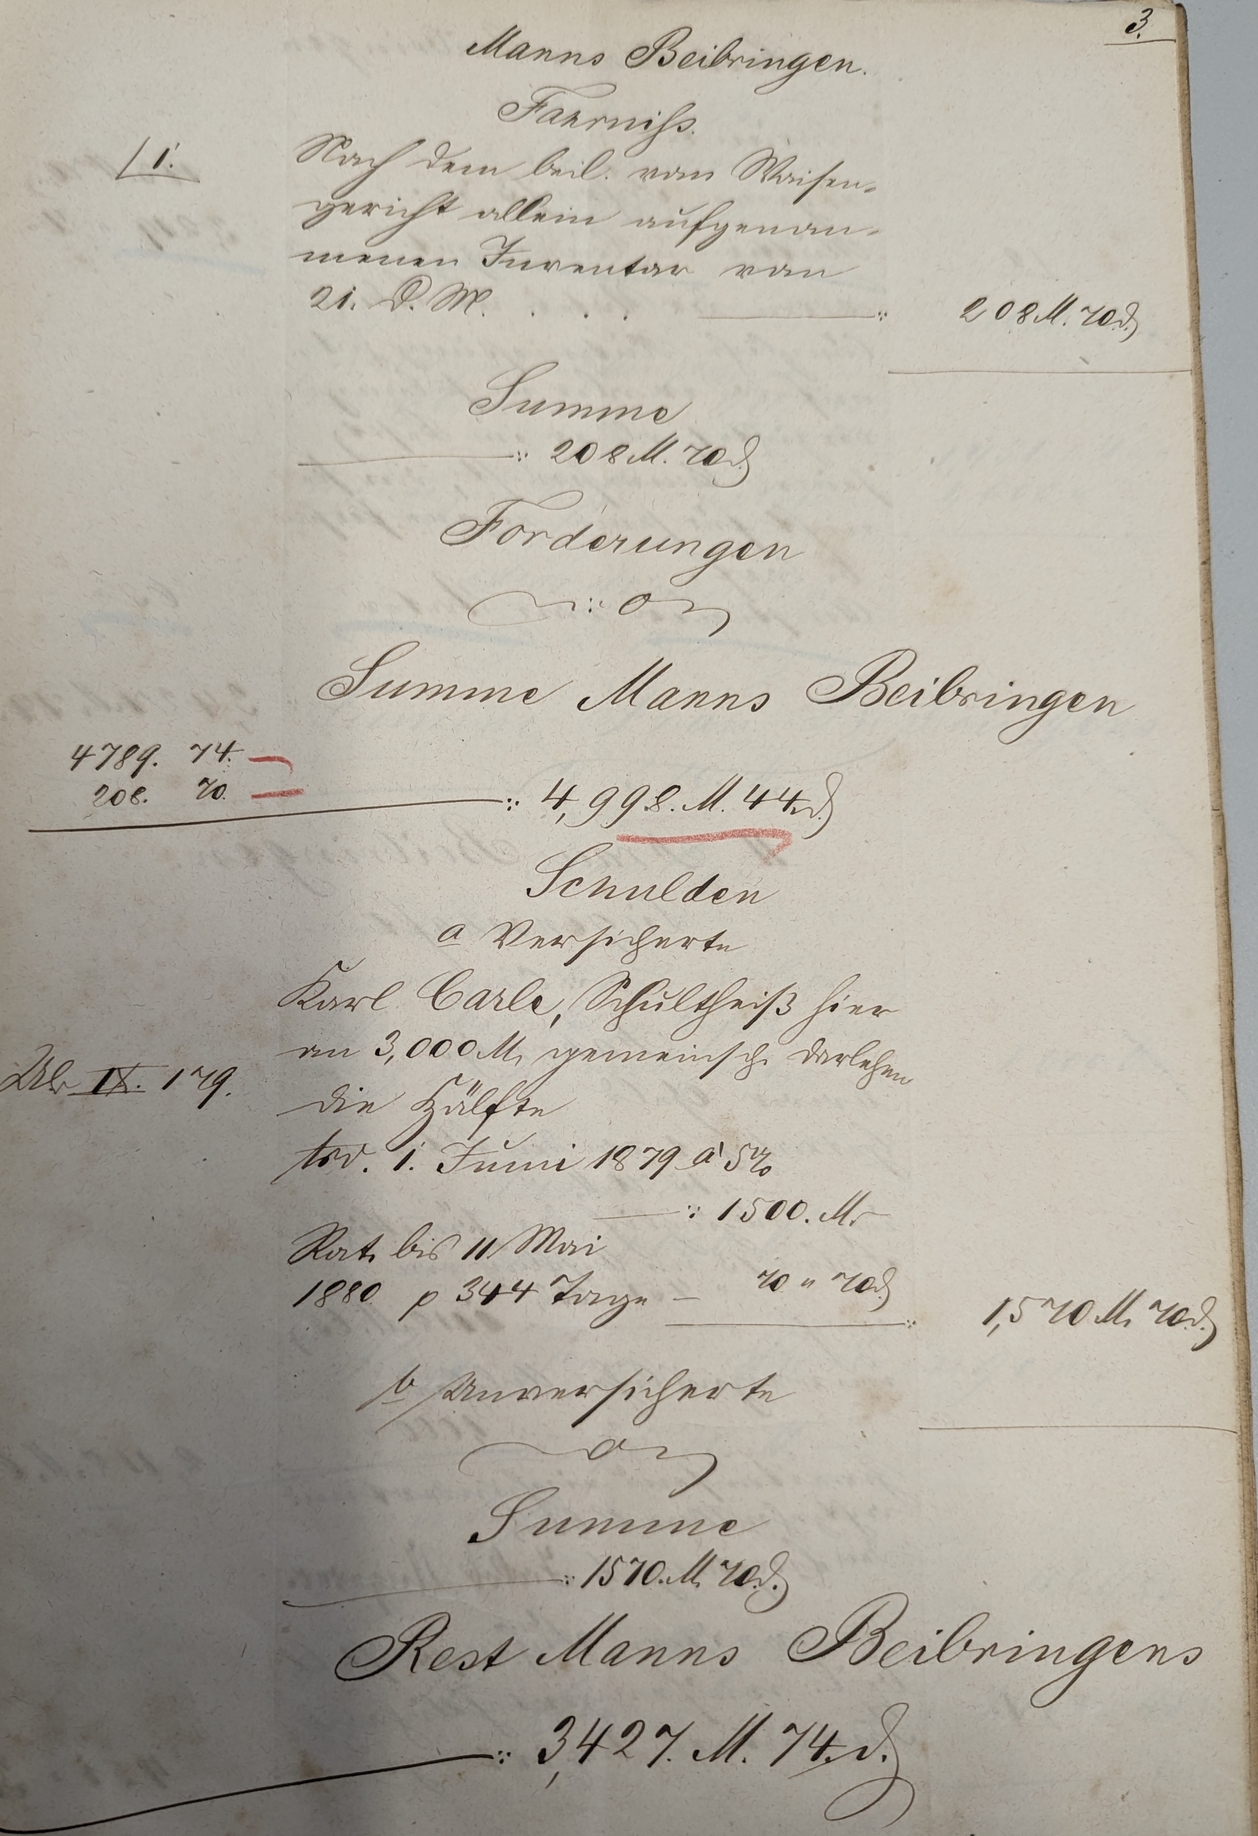 3.
Manns Beibringen.
Fahrniß.
1. Nach dem beil. vom Waisen-
gericht allein aufgenom-
menen Inventar vom
21. d. M. . . . 208 M. 70 ₰
Summe
208 M. 70 ₰
Forderungen
: 0
Summe Manns Beibringen
4789. 74.
208. 70.
4,998. M. 44 ₰
Schulden
a Versicherte
Karl Carle, Schultheiß hier
an 3,000 M. gemeinsch. Darlehen
IX. 179.
die Hälfte
1. Juni 1879 à 5%
1500. M.
Rat. bis 11 Mai
1880 p 344 Tage – 70 " 70 ₰
1,570 M. 70 ₰
b Unversicherte
0
Summe
1570. M. 70 ₰.
Rest Manns Beibringens
3,427. M. 74. ₰.